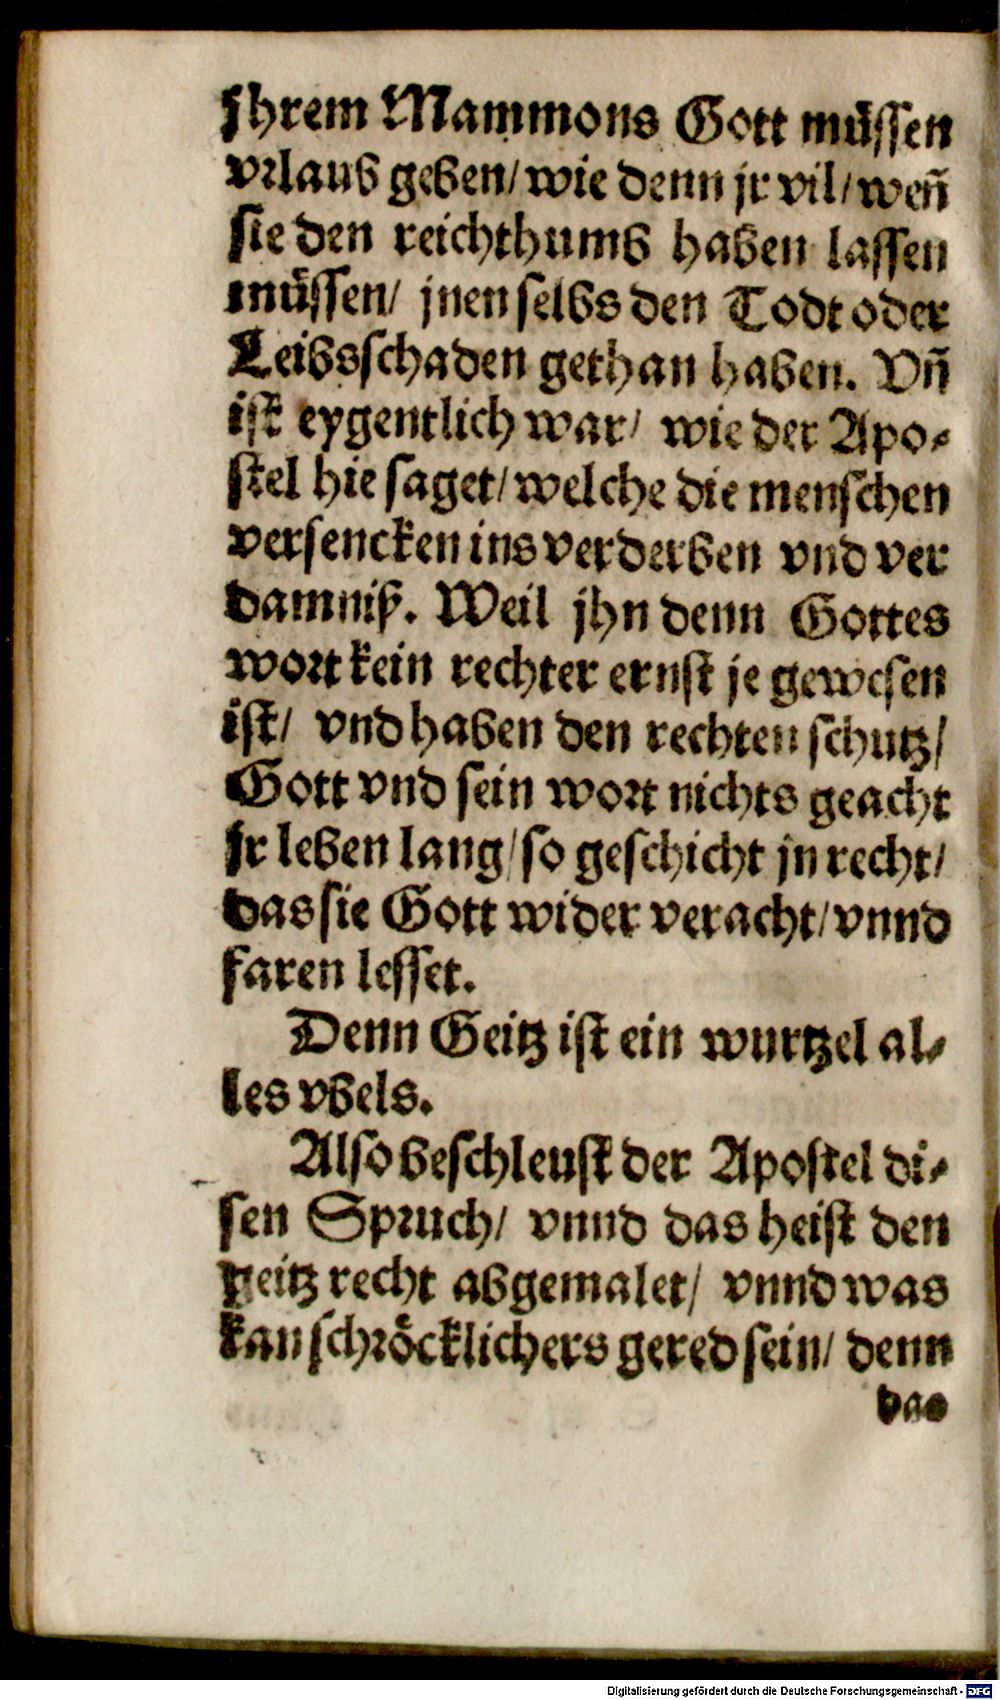 jhrem Mammons Gott müssen
vrlaub geben/ wie denn jr vil/ weñ
sie den reichthumb haben lassen
müssen/ jnen selbs den Todt oder
Leibsschaden gethan haben. Vñ
ist eygentlich war/ wie der Apo-
stel hie saget/ welche die menschen
versencken ins verderben vnd ver
damniß. Weil jhn denn Gottes
wort kein rechter ernst je gewesen
ist/ vnd haben den rechten schutz/
Gott vnd sein wort nichts geacht
jr leben lang/ so geschicht jn recht/
das sie Gott wider veracht/ vnnd
faren lesset.
Denn Geitz ist ein wurtzel al-
les vbels.
Also beschleust der Apostel di-
sen Spruch/ vnnd das heist den
geitz recht abgemalet/ vnnd was
kan schröcklichers gered sein/ denn
das
Digitalisierung gefördert durch die Deutsche Forschungsgemeinschaft - DFG